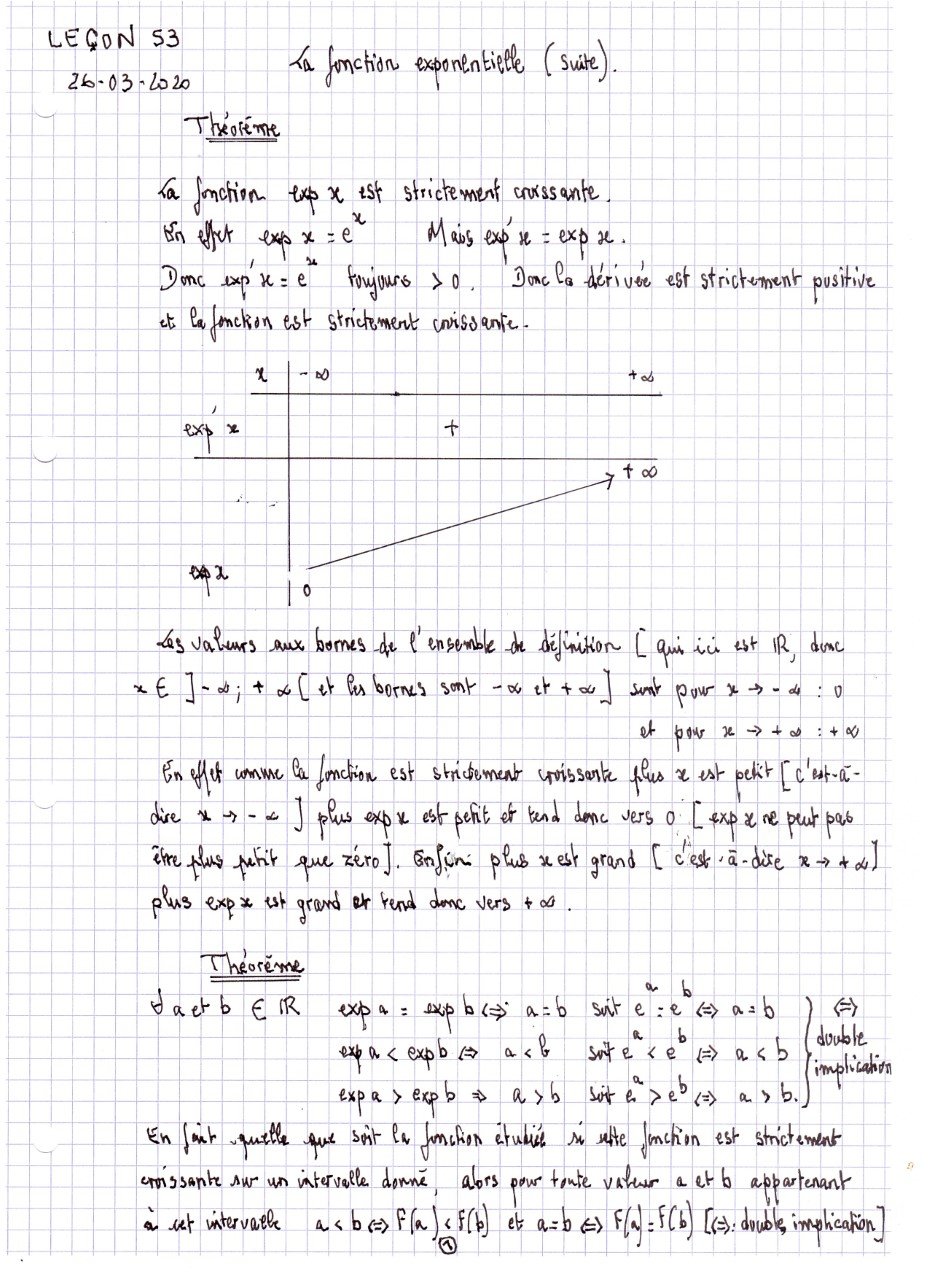 LEÇON 53
26-03-2020
La fonction exponentielle (suite).
Théorème
La fonction exp x est strictement croissante.
En effet exp x = e^x Mais exp' x = exp x.
Donc exp' x = e^x toujours > 0. Donc la dérivée est strictement positive
et la fonction est strictement croissante.
x - ∞ + ∞
exp' x +
+ ∞
exp x
0
Les valeurs aux bornes de l'ensemble de définition [ qui ici est ℝ, donc
x ∈ ] - ∞; + ∞ [ et les bornes sont - ∞ et + ∞ ] sont pour x → - ∞ : 0
et pour x → + ∞ : + ∞
En effet comme la fonction est strictement croissante plus x est petit [ c'est-à-
dire x → - ∞ ] plus exp x est petit et tend donc vers 0 [ exp x ne peut pas
être plus petit que zéro]. Enfin plus x est grand [ c'est-à-dire x → + ∞]
plus exp x est grand et tend donc vers + ∞.
Théorème
∀ a et b ∈ ℝ exp a = exp b ⇔ a = b soit e^a = e^b ⇔ a = b } ⇔
exp a < exp b ⇔ a < b soit e^a < e^b ⇔ a < b double
exp a > exp b ⇒ a > b soit e^a > e^b ⇔ a > b. implication
En fait quelle que soit la fonction étudiée si cette fonction est strictement
croissante sur un intervalle donné, alors pour toute valeur a et b appartenant
à cet intervalle a < b ⇔ F(a) < F(b) et a = b ⇔ F(a) = F(b) [⇔: double implication]
1